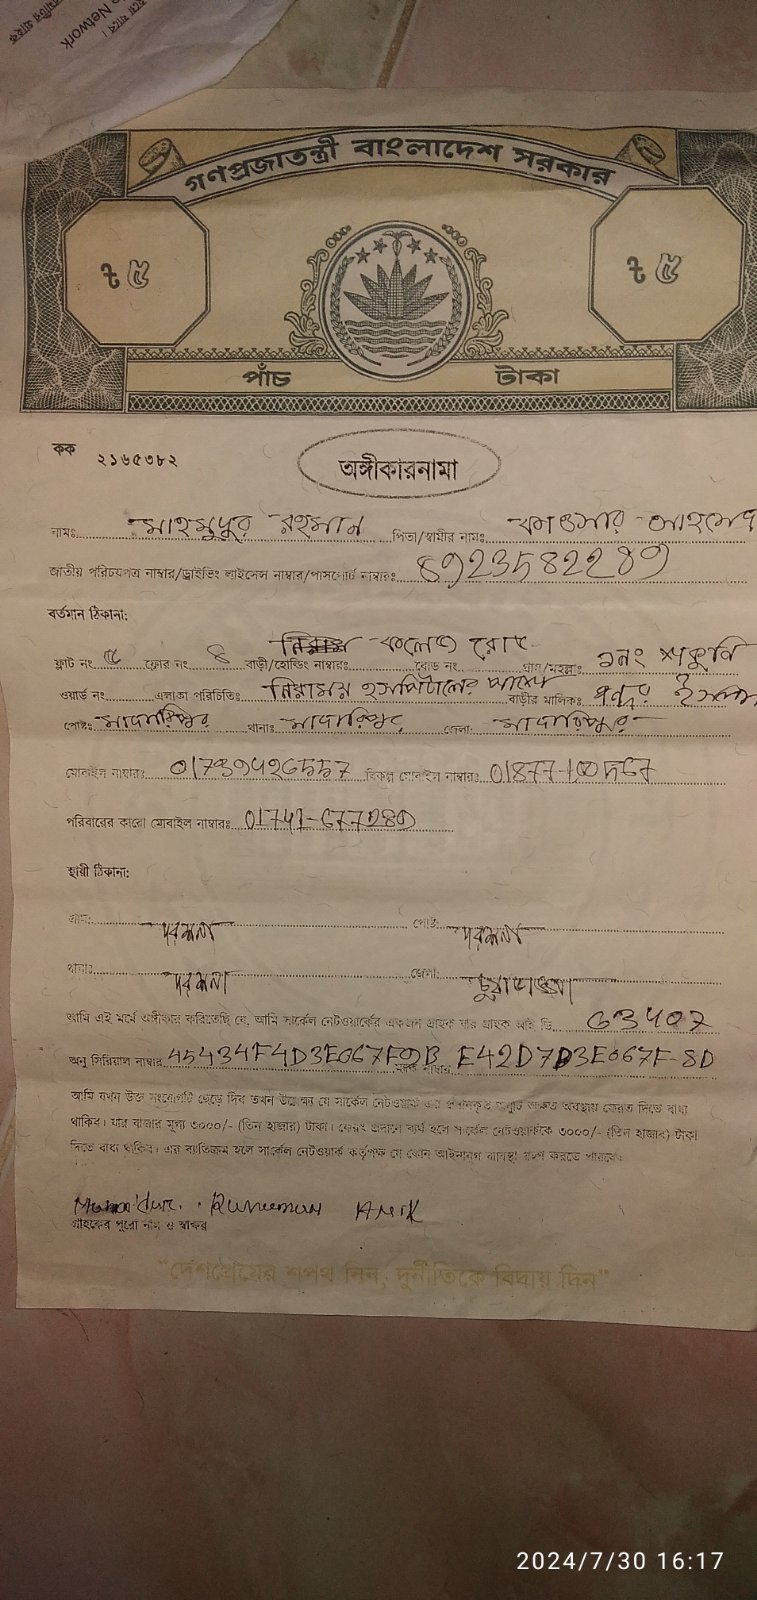 Network
গণপ্রজাতন্ত্রী বাংলাদেশ সরকার
৳ ৫ ৳ ৫
পাঁচ টাকা
কক ২১৬৫৩৮২
অঙ্গীকারনামা
নামঃ রহমান পিতা/স্বামীর নামঃ
জাতীয় পরিচয়পত্র নাম্বার/ড্রাইভিং লাইসেন্স নাম্বার/পাসপোর্ট নাম্বারঃ 8923582289
বর্তমান ঠিকানা:
কলেজ রোড
ফ্লাট নং ৫ ফ্লোর নং 8 বাড়ী/হোল্ডিং নাম্বারঃ রোড নং গ্রাম/মহল্লাঃ ১নং শকুনি
ওয়ার্ড নং এলাকা পরিচিতিঃ নিরাময় হসপিটালের পাশে বাড়ীর মালিকঃ
পোষ্টঃ মাদারিপুর থানাঃ মাদারিপুর জেলা মাদারিপুর
মোবাইল নাম্বারঃ 01739426557 বিকল্প মোবাইল নাম্বারঃ
পরিবারের কারো মোবাইল নাম্বারঃ 01741-677289
স্থায়ী ঠিকানা:
গ্রাম: দর্শনা পোষ্ট: দর্শনা
থানাঃ দর্শনা জেলা: চুয়াডাঙ্গা
আমি এই মর্মে অঙ্গীকার করিতেছি যে, আমি সার্কেল নেটওয়ার্কের একজন গ্রাহক যার গ্রাহক আই ডি G3407
অনু সিরিয়াল নাম্বার 45434F4D3E067F9B ম্যাক নাম্বার E42D7B3E067F-8D
আমি যখন উক্ত সংযোগটি ছেড়ে দিব তখন উল্লেখ্য যে সার্কেল নেটওয়ার্ক এর প্রদানকৃত অক্ষত অবস্থায় ফেরত দিতে বাধ্য
থাকিব। যার বাজার মূল্য ৩০০০/- (তিন হাজার) টাকা। ফেরৎ প্রদানে ব্যর্থ হলে সার্কেল নেটওয়ার্ককে ৩০০০/- (তিন হাজার) টাকা
দিতে বাধ্য থাকিব। এর ব্যতিক্রম হলে সার্কেল নেটওয়ার্ক কর্তৃপক্ষ যে কোন আইনানুগ ব্যবস্থা গ্রহণ করতে পারবে।
গ্রাহকের পুরো নাম ও স্বাক্ষর
"দেশপ্রেমের শপথ নিন, দুর্নীতিকে বিদায় দিন"
2024/7/30 16:17